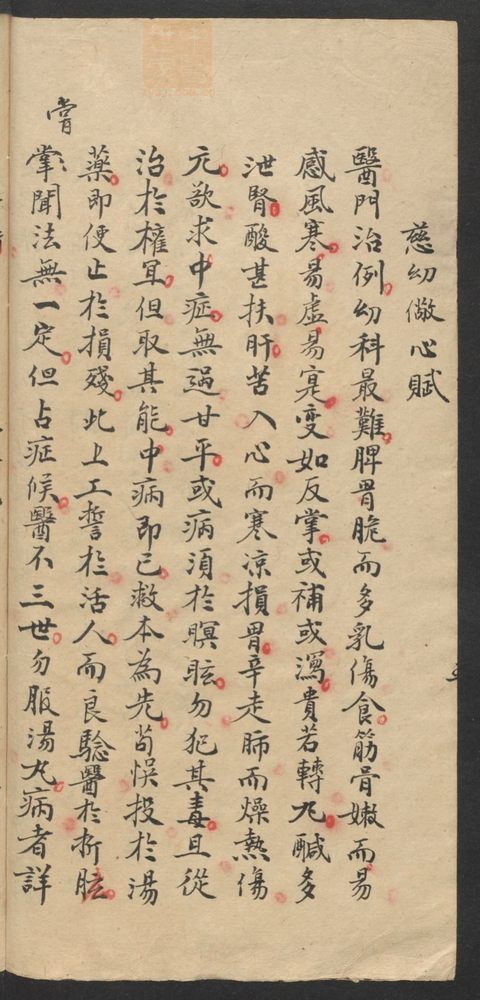 慈幼儆心賦
醫門治例幼科最難脾胃脆而多乳傷食筋骨嫩而易
感風寒易虛易寔变如反掌或補或瀉貴若轉丸醎多
泄腎酸甚扶肝苦入心而寒凉損胃辛走肺而燥熱傷
元欲求中症無過甘平或病須於瞑眩勿犯其毒且從
治於權冝但取其能中病即已救本為先苟悮投於湯
藥即便止於損殘此上工誓於活人而良驗醫於折肱
嘗
掌聞法無一定但占症候醫不三世勿服湯丸病者詳